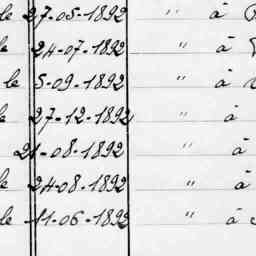 le 27-05-1892 " à
le 24-07-1892 " à
le 5-09-1892 " à
le 27-12-1892 " à
21-08-1892 " à
le 24-08-1892 " à
le 11-06-1892 " à